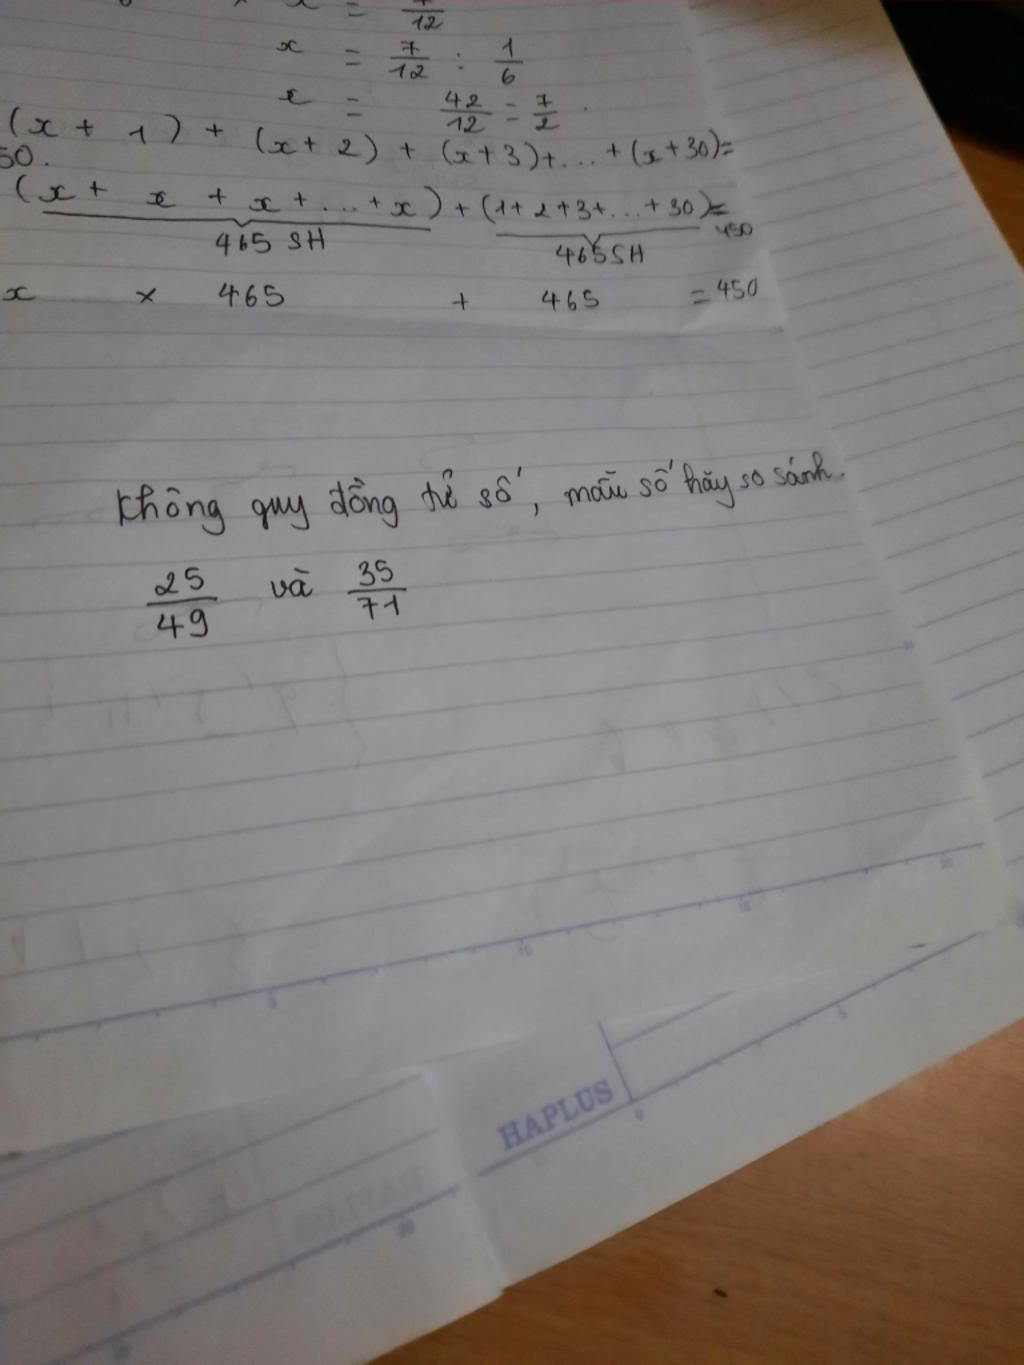 x = 7/12
x = 7/12 : 1/6
x = 42/12 = 7/2 .
(x + 1) + (x + 2) + (x+3)+...+(x+30)=
50.
(x + x + x +...+x) + (1+2+3+...+30)=
450
465 SH 465SH
x × 465 + 465 = 450
Không quy đồng tử số, mẫu số hãy so sánh.
25/49 và 35/71
5 10 15 20
HAPLUS
0 5